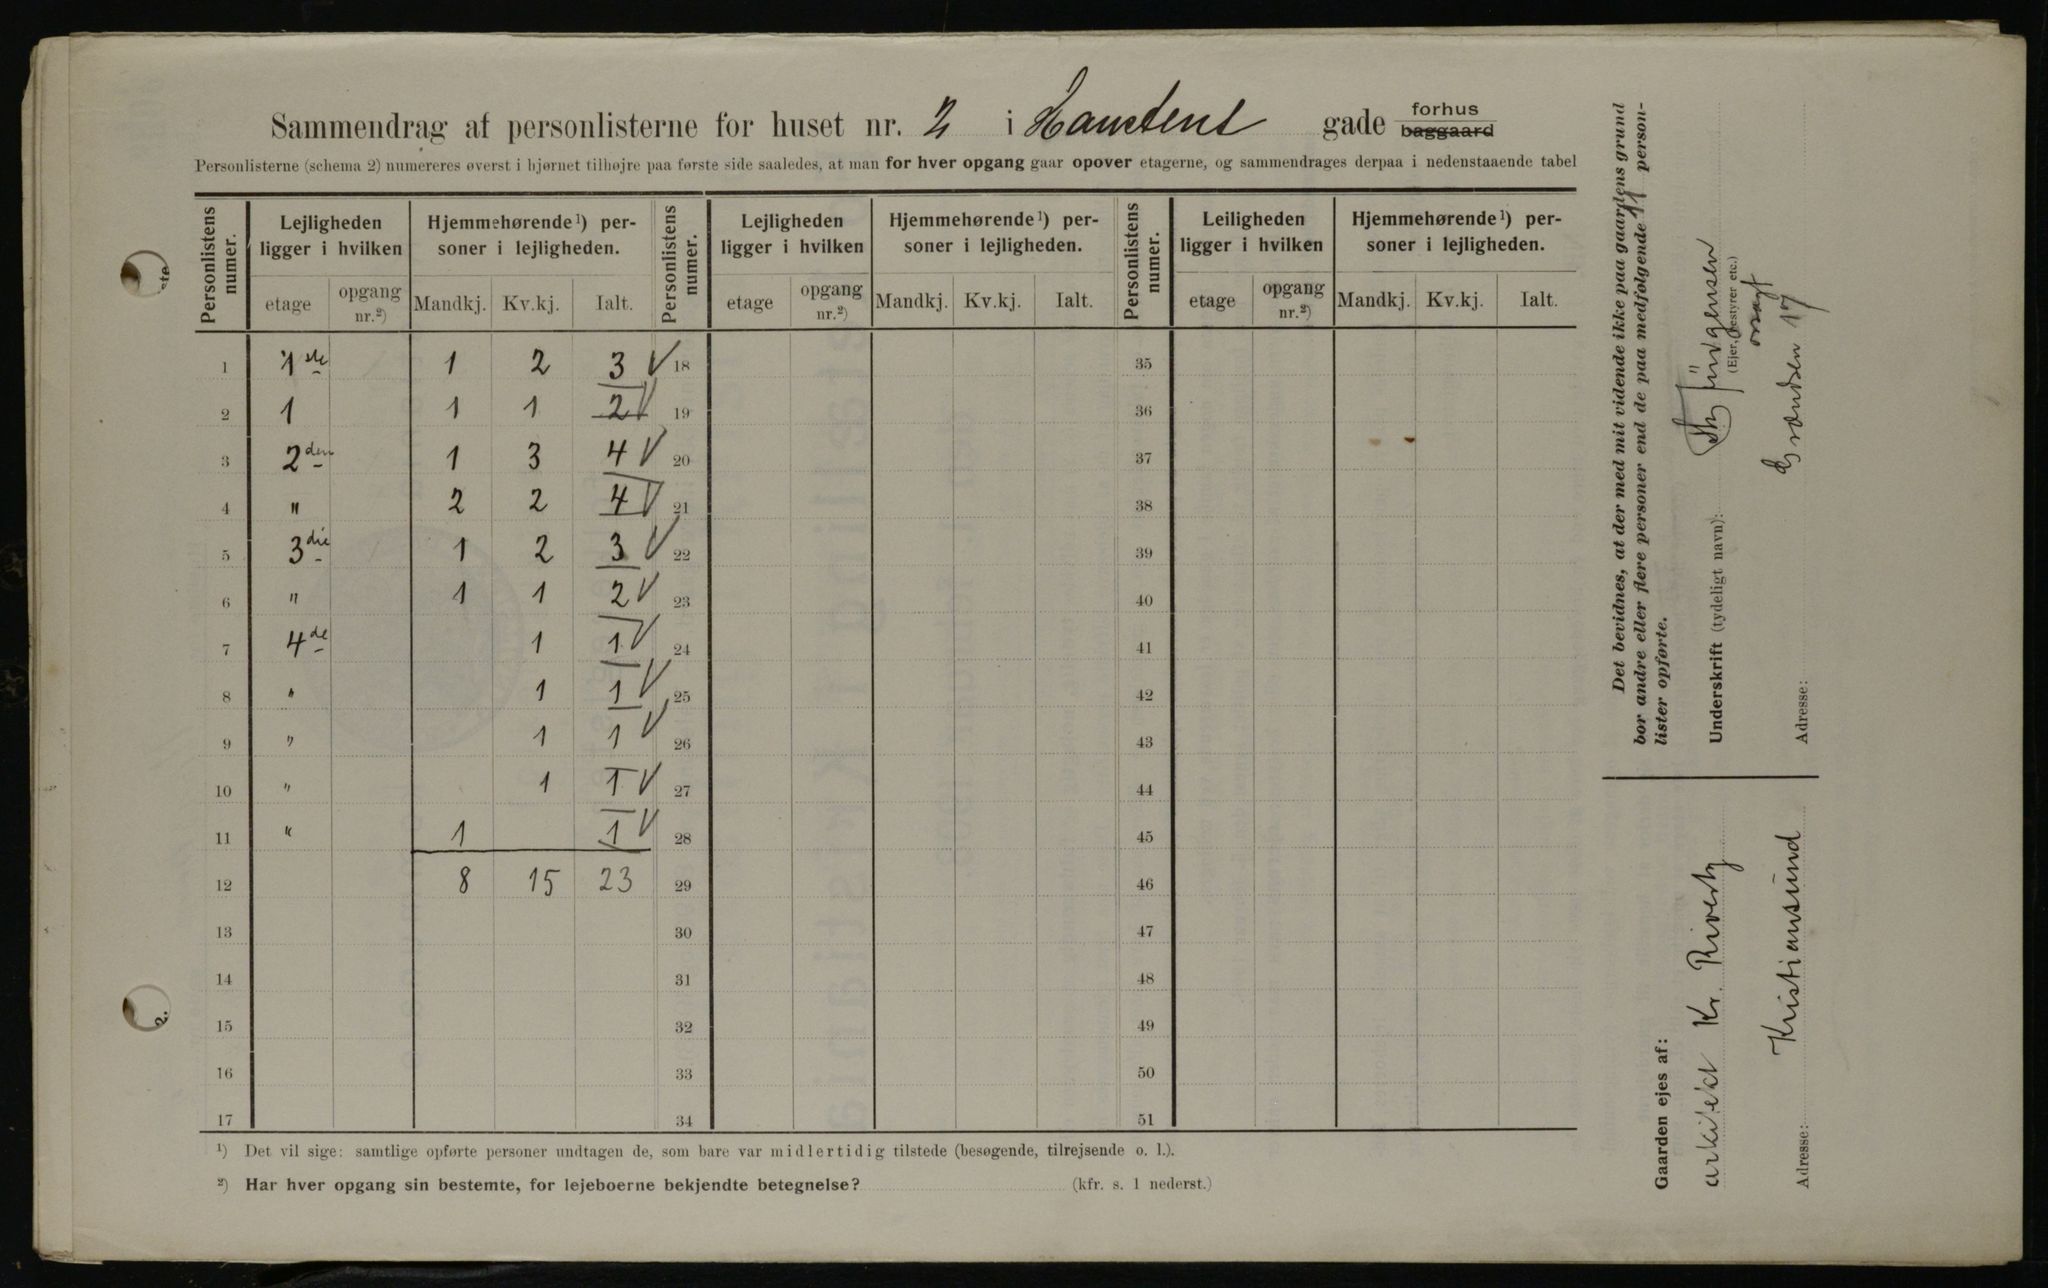 Sammendrag af personlisterne for huset nr. 2 i Hanstens gade forhus baggaard
Personlisterne (schema 2) numereres øverst i hjørnet tilhøjre paa første side saaledes, at man for hver opgang gaar opover etagerne, og sammendrages derpaa i nedenstaaende tabel
Personlistens numer. Lejligheden ligger i hvilken Hjemmehørende ¹) personer i lejligheden. Personlistens numer. Lejligheden ligger i hvilken Hjemmehørende ¹) personer i lejligheden. Personlistens numer. Leiligheden ligger i hvilken Hjemmehørende ¹) personer i lejligheden.
etage opgang nr.²) Mandkj. Kv.kj. Ialt. etage opgang nr.²) Mandkj. Kv.kj. Ialt. etage opgang nr.²) Mandkj. Kv.kj. Ialt.
1 1ste 1 2 3 18 35
2 1 1 1 2 19 36
3 2den 1 3 4 20 37
4 " 2 2 4 21 38
5 3die 1 2 3 22 39
6 " 1 1 2 23 40
7 4de 1 1 24 41
8 " 1 1 25 42
9 " 1 1 26 43
10 " 1 1 27 44
11 " 1 1 28 45
12 8 15 23 29 46
13 30 47
14 31 48
15 32 49
16 33 50
17 34 51
¹) Det vil sige: samtlige opførte personer undtagen de, som bare var midlertidig tilstede (besøgende, tilrejsende o. l.).
²) Har hver opgang sin bestemte, for lejeboerne bekjendte betegnelse? (kfr. s. 1 nederst.)
Det bevidnes, at der med mit vidende ikke paa gaardens grund
bor andre eller flere personer end de paa medfølgende 11 person-
lister opførte.
Underskrift (tydeligt navn): Jürgensen
(Ejer, bestyrer etc.)
Adresse: Grændsen 17
Gaarden ejes af:
arkitekt Kr. Rivertz
Adresse: Kristiansund